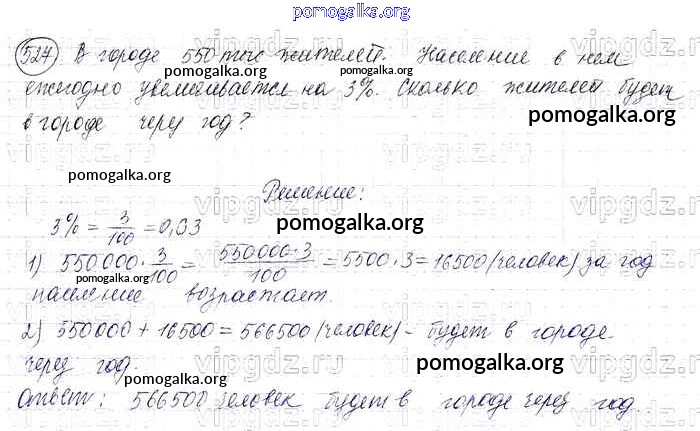 pomogalka.org
527) В городе 550 тыс жителей. Население в нем
ежегодно увеличивается на 3%. Сколько жителей будет
в городе через год?
Решение:
3% = 3/100 = 0,03
1) 550000 · 3/100 = 550000·3/100 = 5500·3 = 16500 (человек) за год
население возрастает.
2) 550000 + 16500 = 566500 (человек) – будет в городе
через год.
Ответ: 566500 человек будет в городе через год.
pomogalka.org
pomogalka.org
pomogalka.org
pomogalka.org
pomogalka.org
pomogalka.org
pomogalka.org
pomogalka.org
pomogalka.org
vipgdz.ru